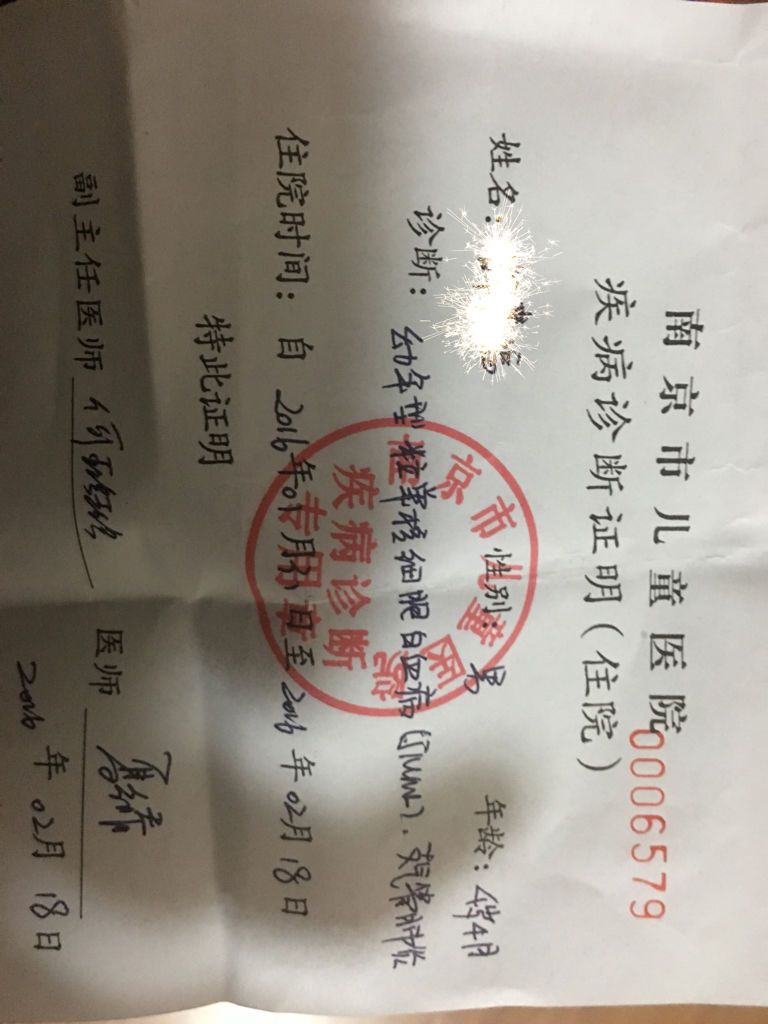 南京市儿童医院
0006579
疾病诊断证明(住院)
姓名: 性别: 男 年龄: 4岁4月
诊断: 幼年型粒单核细胞白血病(JMML)、支气管肺炎
住院时间: 自 2016年01月 日至 2016年02月18日
特此证明
副主任医师 医师
2016年02月18日
京市儿童医
疾病诊断
专用章